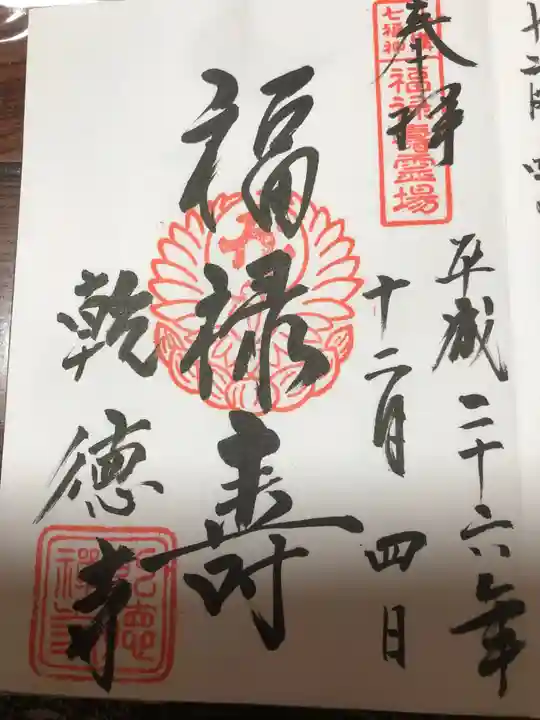 奉拝
七福神
福禄寿霊場
平成二十六年
十二月四日
福禄寿
乾徳寺